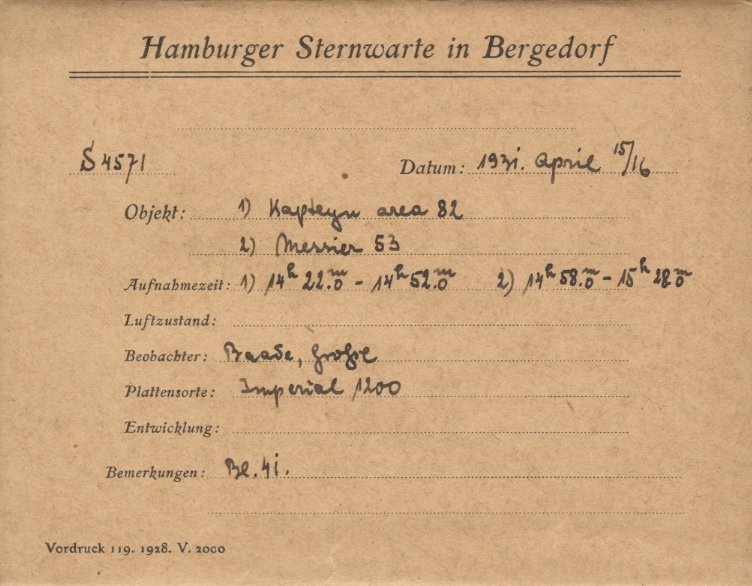 Hamburger Sternwarte in Bergedorf
S 4571 Datum: 1931. April 15/16
Objekt: 1) Kapteyn area 82
2) Messier 53
Aufnahmezeit: 1) 14h 22.m0 - 14h 52.m0 2) 14h 58.m0 - 15h 28.m0
Luftzustand:
Beobachter: Baade,
Plattensorte: Imperial 1200
Entwicklung:
Bemerkungen: Bl. 41.
Vordruck 119. 1928. V. 2000